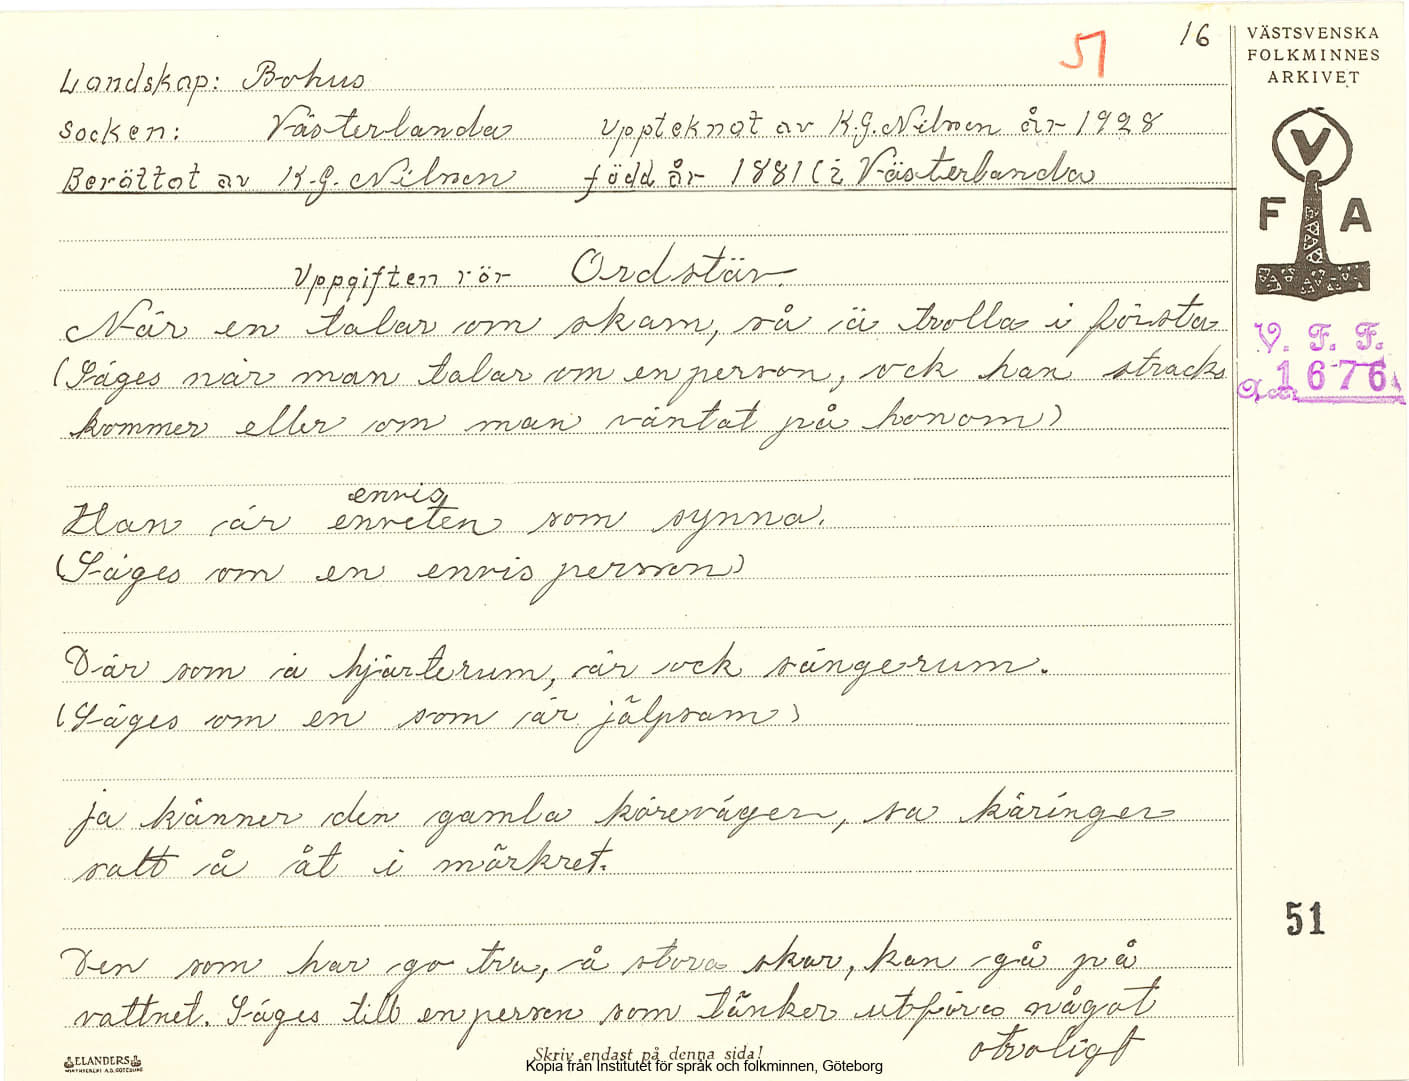 51
16
VÄSTSVENSKA
FOLKMINNES
ARKIVET
Landskap: Bohus
Socken: Västerlanda Upptecknat av K.G. Nilsson år 1928
Berättat av K.G. Nilsson född år 1881 (i Västerlanda
V
F A
Uppgiften rör Ordstäv.
När en talar om skam, så ä trolla i första
(Säges när man talar om en person, ock han stracks
kommer eller om man väntat på honom)
V. F. F.
1676
envis
Han är enveten som synna.
(Säges om en envis person)
Där som ä hjärterum, är ock sängerum.
(Säges om en som är jälpsam)
ja känner den gamla körevägen, sa käringer
satt å åt i mörkret.
51
Den som har go tro, å stora skor, kan gå på
vattnet. Säges till en person som tänker utföra något
otroligt
Skriv endast på denna sida!
ELANDERS
Kopia från Institutet för språk och folkminnen, Göteborg